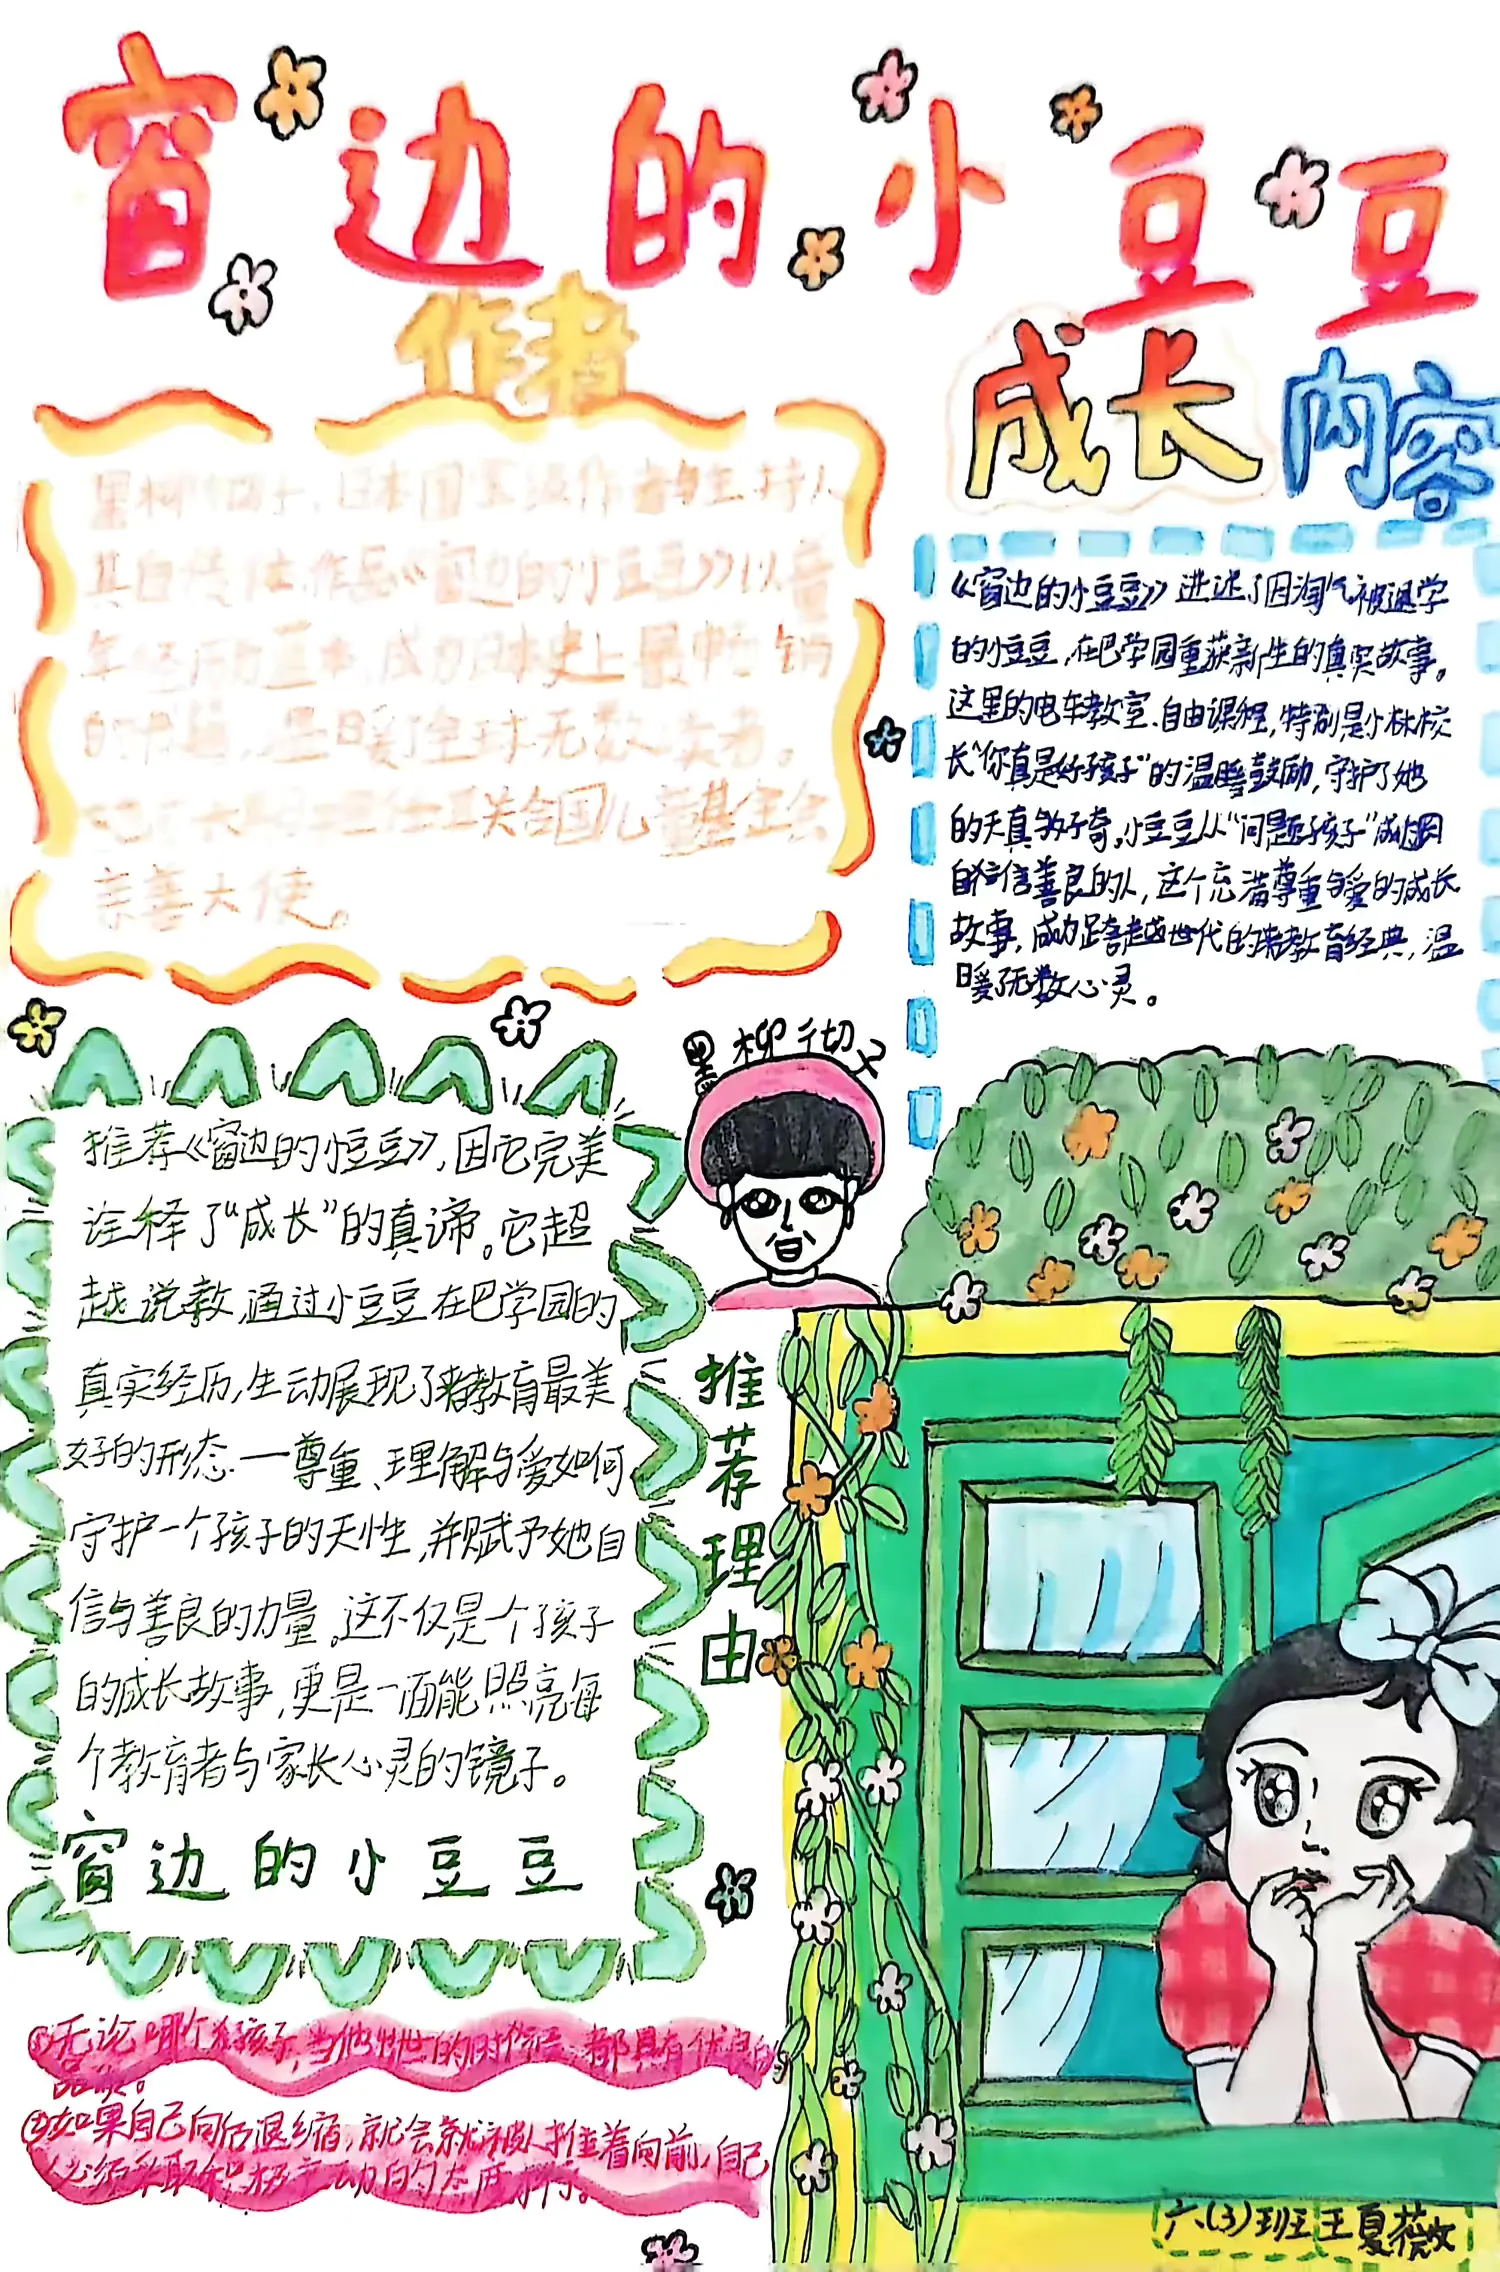 窗边的小豆豆
作者
成长
内容
日本国 作 者与主持人
其自传体作品《窗边的小豆豆》以童
年经历为蓝本,成为日本史上最畅销
的书籍, 温暖了全球无数读者。
联合国儿童基金会
亲善大使。
《窗边的小豆豆》讲述了因淘气被退学
的小豆豆,在巴学园重获新生的真实故事。
这里的电车教室、自由课程,特别是小林校
长“你真是好孩子”的温暖鼓励,守护了她
的天真与好奇。小豆豆从“问题孩子”成
自信善良的人,这个充满尊重与爱的成长
故事,成为跨越世代的教育经典,温
暖了无数心灵。
黑柳彻子
推荐《窗边的小豆豆》,因它完美
诠释了“成长”的真谛。它超
越说教,通过小豆豆在巴学园的
真实经历,生动展现了教育最美
好的形态.一尊重、理解与爱如何
守护一个孩子的天性,并赋予她自
信与善良的力量。这不仅是一个孩子
的成长故事,更是一面能照亮每
个教育者与家长心灵的镜子。
窗边的小豆豆
推荐理由
①无论哪个孩子,当他出世的时候,都具有优良的
品质。
②如果自己向后退缩,就会被人推着向前,自己
必须采取积极主动的态度才行。
六(3)班王夏薇